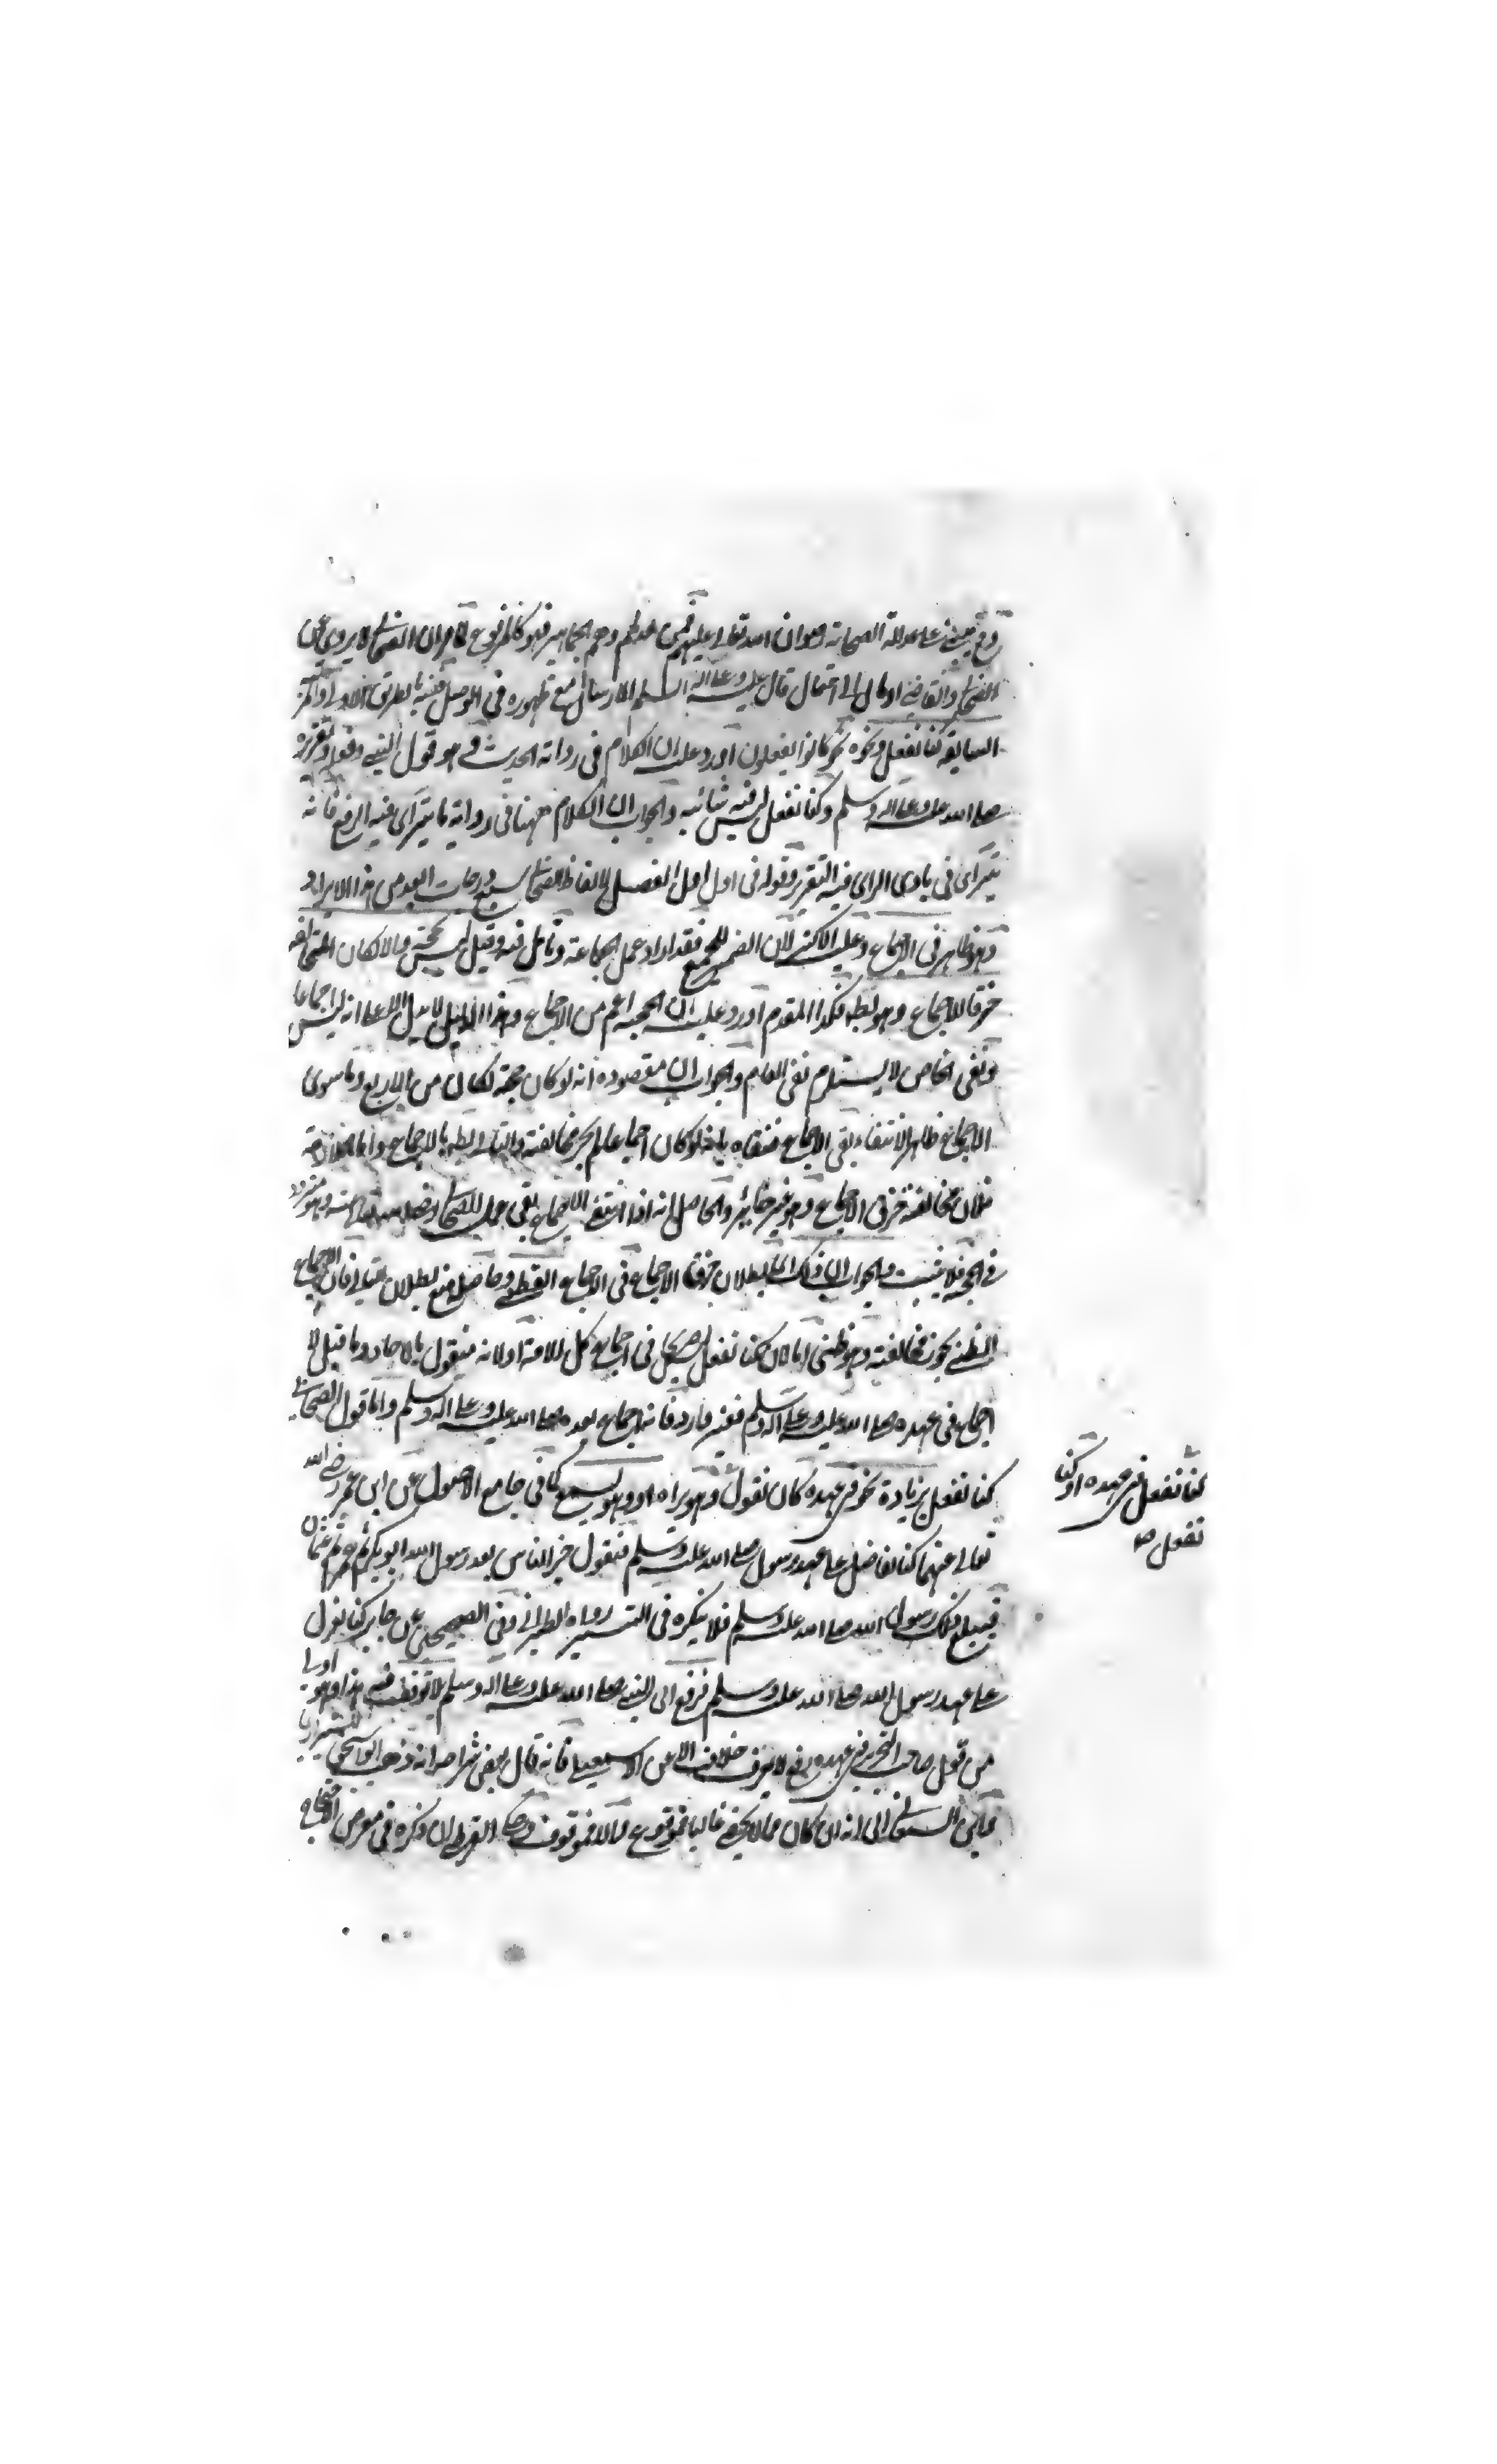 على عدالة الصحابة رضوان الله تعالى عليهم فمن عدلهم وهم الجماهير فهو كالمرفوع لما مر ان الصحابي لا يروي عن
الصحابي والقاضي او مال الى احتمال قال عليه وعلى اله السلم الارسال مع ظهوره في الوصل ففيه بالطريق الاولى
السابقة كنا نفعل ونحوه نحو كانوا يفعلون اورد عليه ان الكلام في رواية الحديث وهو قول النبي وفعله وتقريره
صلى الله عليه وعلى اله وسلم وكنا نفعل ليس فيه شائبه والجواب ان الكلام ههنا في رواية ما يتراى فيه الرفع فانه
يتراى في بادى الراى فيه التقرير وقوله في اول الفصل لالفاظ الصحابي سبع درجات ابعد من هذا الايراد
وهو ظاهر في الاجماع وعليه الاكثر لان الضمير للجميع فقد اراد عمل الجماعة وتامل فيه وقيل ليس بحجة والا لكان المخالفة
خرقا للاجماع وهو بط فكذا المقدم اورد عليه ان الحجية اعم من الاجماع وهذا الدليل لا يدل الا على انه ليس اجماعا
ونفي الخاص لا يستلزم نفي العام والجواب ان مقصوده انه لو كان حجة لكان من الاربع وما سوى
الاجماع ظاهر الانتفاء بقي الاجماع فنفاه بانه لو كان اجماعا لم يجز مخالفته والتالي بط بالاجماع واما الملازمة
فلان مخالفته خرق الاجماع وهو غير جائز والحاصل انه اذا انتفى الاجماع بقي عمل الصحابي
في الحجية فلا يثبت والجواب ان ذلك اى بطلان خرق الاجماع في الاجماع القطعي وحاصله منع بطلان التالي فان الاجماع
الظني يجوز مخالفته وهو ظني اما لان كنا نفعل ليس في اجماع كل الامة او لانه منقول بالاحاد وما قيل لا
اجماع في عهده صلى الله عليه وعلى اله وسلم فغير وارد فانه اجماع بعده صلى الله عليه وعلى اله وسلم واما قول الصحابي
كنا نفعل بزيادة نحو في عهده كان نقول وهو يراه او وهو يسمع كما في جامع الاصول عن ابن عمر رضي الله
تعالى عنهما كنا نفاضل على عهد رسول صلى الله عليه وسلم فنقول خير الناس بعد رسول الله ابو بكر ثم عمر ثم عثمان
فيبلغ ذلك رسول الله صلى الله عليه وسلم فلا ينكره في التيسير رواه الطبراني وفي الصحيحين عن جابر كنا نعزل
على عهد رسول الله صلى الله عليه وسلم فرفع الى النبي صلى الله عليه وعلى اله وسلم لا توقف فيه هذا وهو اولى
من قول صاحب التحرير في عهده رفع لا يعرف خلاف الا عن الاسمعيلي فانه قال بعض شراحه انه ذهب ابو اسحق الشيرازي
وابن السمعاني الى انه ان كان مما لا يخفى غالبا فمرفوع والا فموقوف وحكى القرطبي ان ذكره في معرض الاحتجاج
كنا نفعل في عهده او كنا
نفعل صح